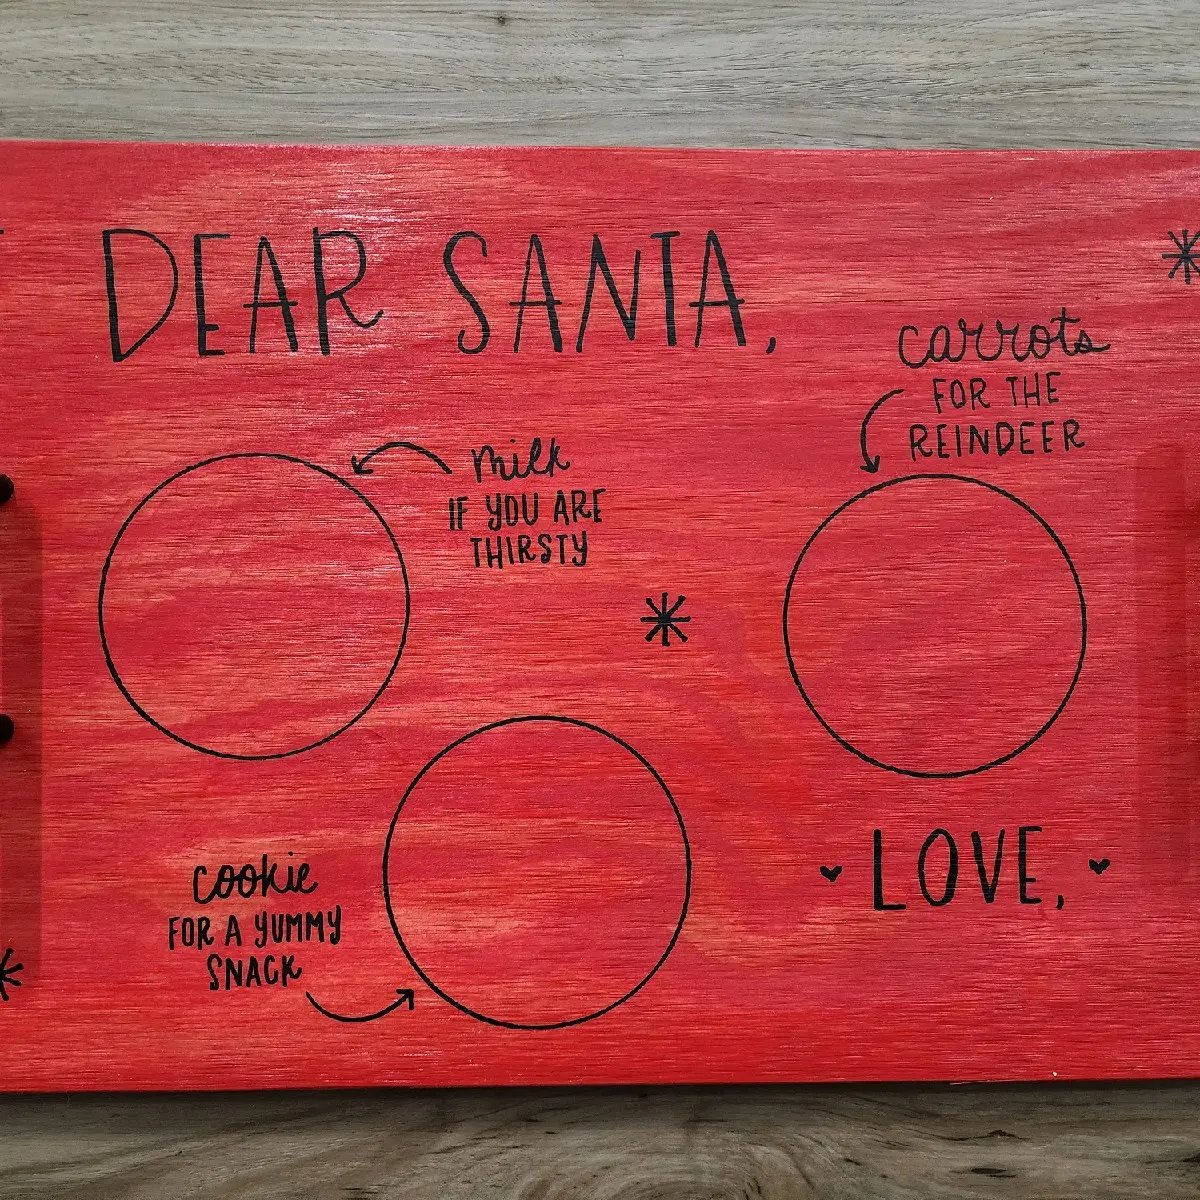 DEAR SANTA,
carrots
FOR THE
REINDEER
milk
IF YOU ARE
THIRSTY
cookie
FOR A YUMMY
SNACK
LOVE,